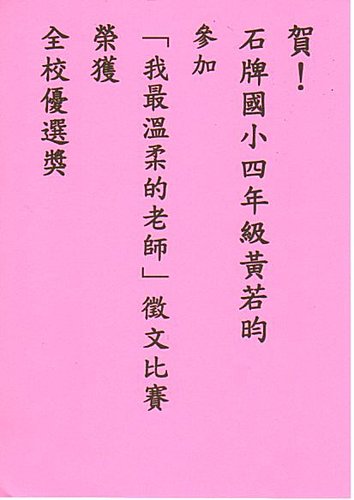 賀！
石牌國小四年級黃若昀
參加
「我最溫柔的老師」徵文比賽
榮獲
全校優選獎